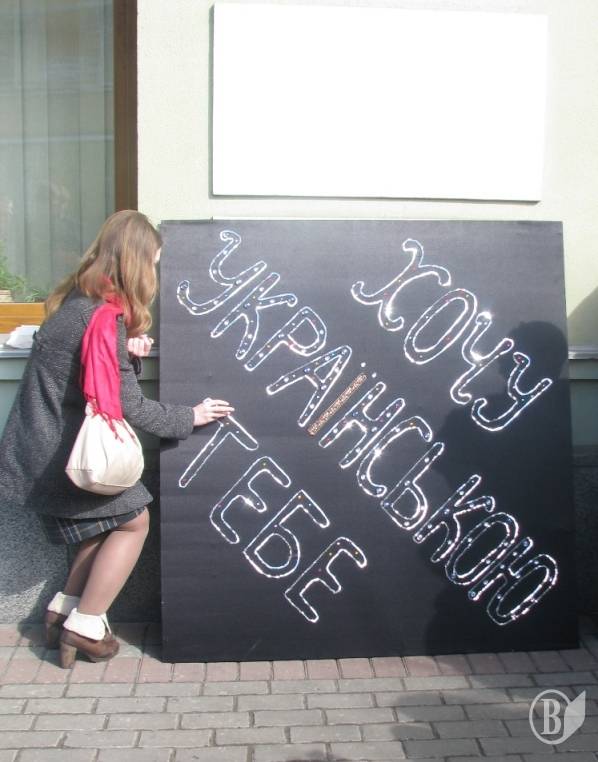 ХОЧУ
УКРАЇНСЬКОЮ
ТЕБЕ
В